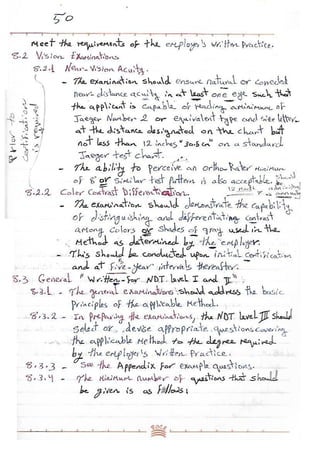 50
Meet the requirements of the employer's written practice.
8.2 Vision Examinations
8.2.1 Near-Vision Acuity.
- The examination should ensure natural or corrected
near-distance acuity in at least one eye such that
the applicant is capable of reading a minimum of
Jaeger Number 2 or equivalent type and size letter
at the distance designated on the chart but
not less than 12 inches "30.5 cm" on a standard
Jaeger test chart.
- The ability to perceive an Ortho-Rater minimum
of 8 or similar test pattern is also acceptable.
Prior to certification is required
8.2.2 Color Contrast Differentiation.
- The examination should demonstrate the capability
of distinguishing and differentiating contrast
among colors or shades of gray used in the
Method as determined by the employer.
- This should be conducted upon initial certification
and at five-year intervals thereafter.
8.3 General "Written - for NDT level I and II"
8.3.1 - The general examinations should address the basic
principles of the applicable Method.
8.3.2 - In preparing the examinations, the NDT level III should
select or devise appropriate questions covering
the applicable Method to the degree required
by the employer's Written Practice.
8.3.3 - See the Appendix for example questions.
8.3.4 - The Minimum number of questions that should
be given is as follows: